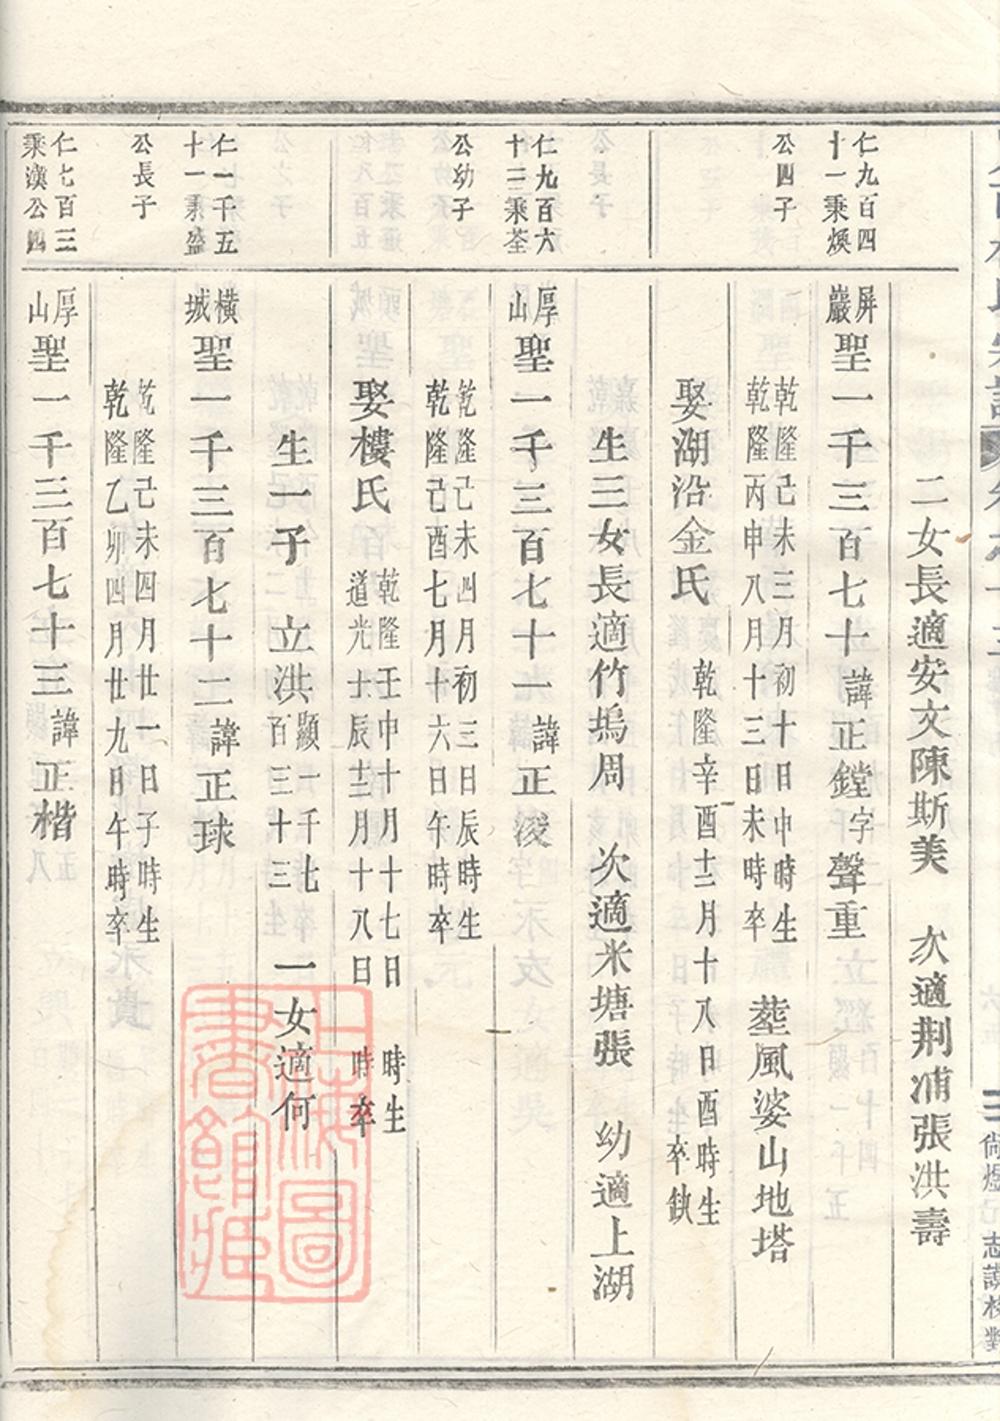 二女長適安文陳斯美　次適荆浦張洪壽
仁九百四
十一乘煥
公四子
屏
巖
聖一千三百七十
諱正鏜
字
聲重
乾隆己未三月初十日申時生
乾隆丙申八月十三日未時卒
葬風婆山地塔
娶湖沿金氏
乾隆辛酉十二月十八日酉時生
卒缺
生三女長適竹塢周　次適米塘張　幼適上湖
仁九百六
十二乘荃
公幼子
厚
山
聖一千三百七十一
諱正浚
乾隆己未四月初三日辰時生
乾隆己酉七月十六日午時卒
娶樓氏
乾隆壬申十月十七日　時生
道光壬辰十二月十八日　時卒
生一子　立洪
顯一千七
百三十三
一女適何
仁一千五
十一乘盛
公長子
橫
城
聖一千三百七十二
諱正球
乾隆己未四月廿一日子時生
乾隆乙卯四月廿九日午時卒
仁七百三
乘漢公四
厚
山
聖一千三百七十三
諱正楷
上海圖
書館藏